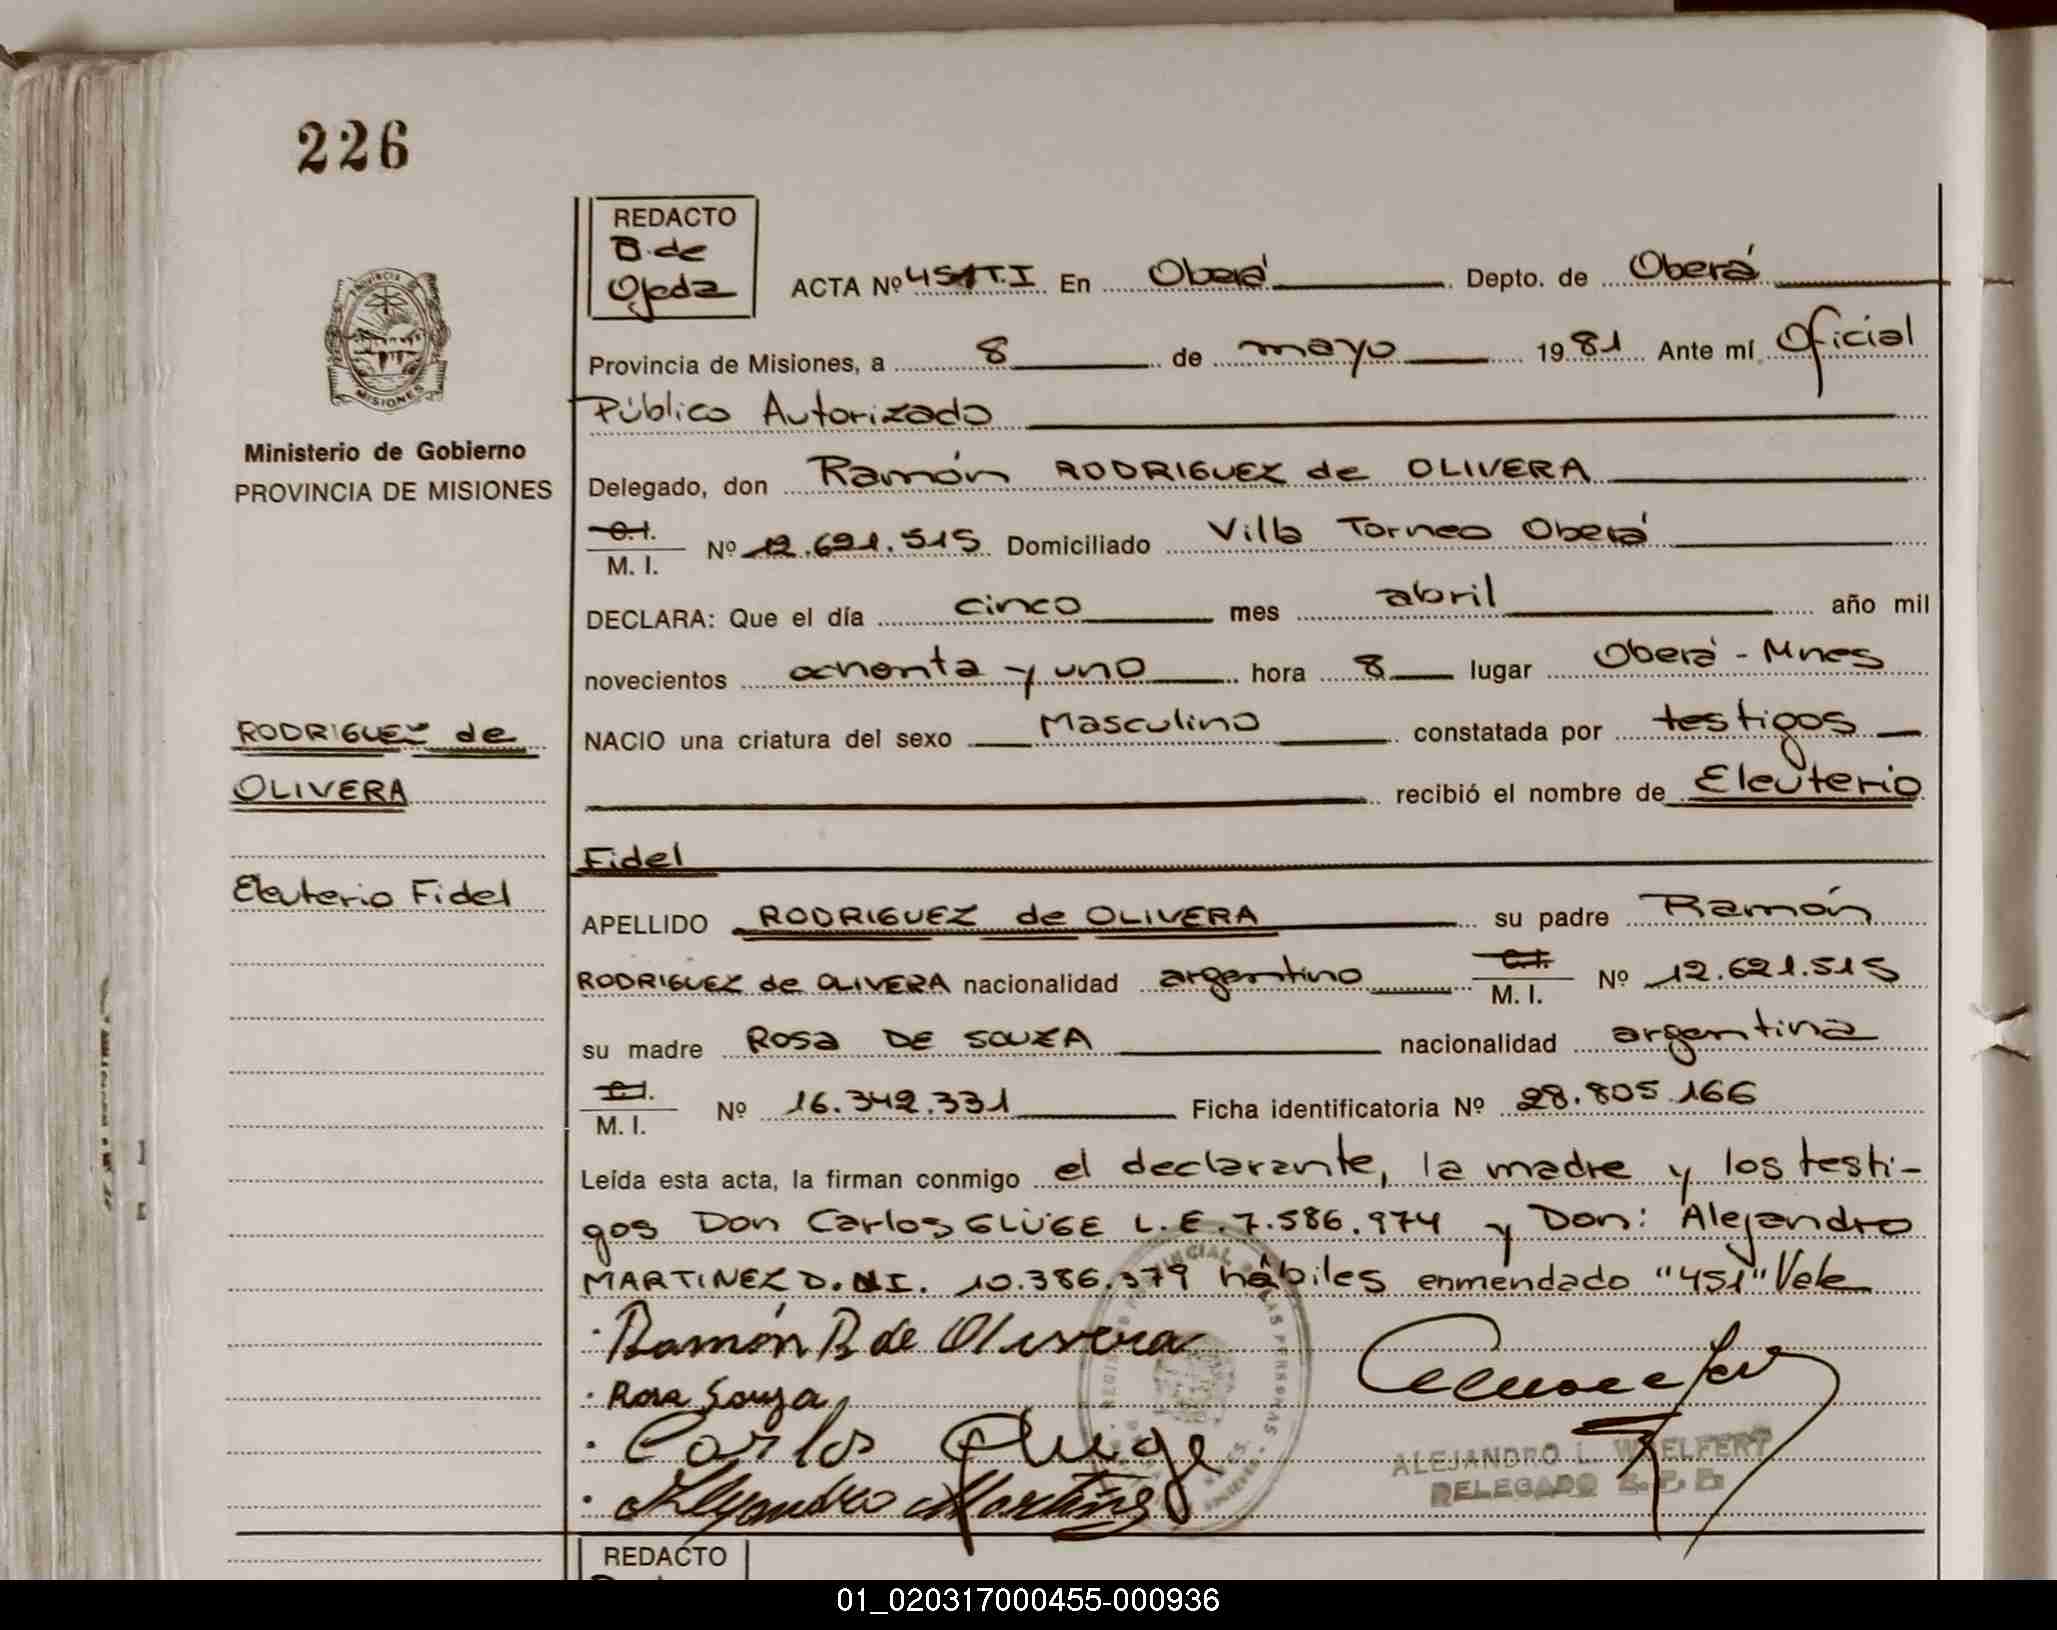 226
REDACTO
B. de
Ojeda
ACTA Nº 451 T.I En Oberá Depto. de Oberá
PROVINCIA
MISIONES
Provincia de Misiones, a 8 de mayo 1981 Ante mí Oficial
Público Autorizado
Ministerio de Gobierno
PROVINCIA DE MISIONES
Delegado, don Ramón RODRIGUEZ de OLIVERA
C.I.
M. I. Nº 12.621.515 Domiciliado Villa Torneo Oberá
DECLARA: Que el día cinco mes abril año mil
novecientos ochenta y uno hora 8 lugar Oberá - Mnes
RODRIGUEZ de
OLIVERA
Eleuterio Fidel
NACIO una criatura del sexo Masculino constatada por testigos
recibió el nombre de Eleuterio
Fidel
APELLIDO RODRIGUEZ de OLIVERA su padre Ramón
RODRIGUEZ de OLIVERA nacionalidad argentino C.I. M. I. Nº 12.621.515
su madre Rosa DE SOUZA nacionalidad argentina
C.I.
M. I. Nº 16.342.331 Ficha identificatoria Nº 28.805.166
Leída esta acta, la firman conmigo el declarante, la madre y los testi-
gos Don Carlos GLÜGE L.E. 7.586.974 y Don: Alejandro
MARTINEZ D.NI. 10.386.379 hábiles enmendado "451" Vale
Ramón R de Olivera
Rosa Souza
Carlos Gluge
Alejandro Martinez
ALEJANDRO L. WOELFERT
DELEGADO R.P.P.
REDACTO
01_020317000455-000936